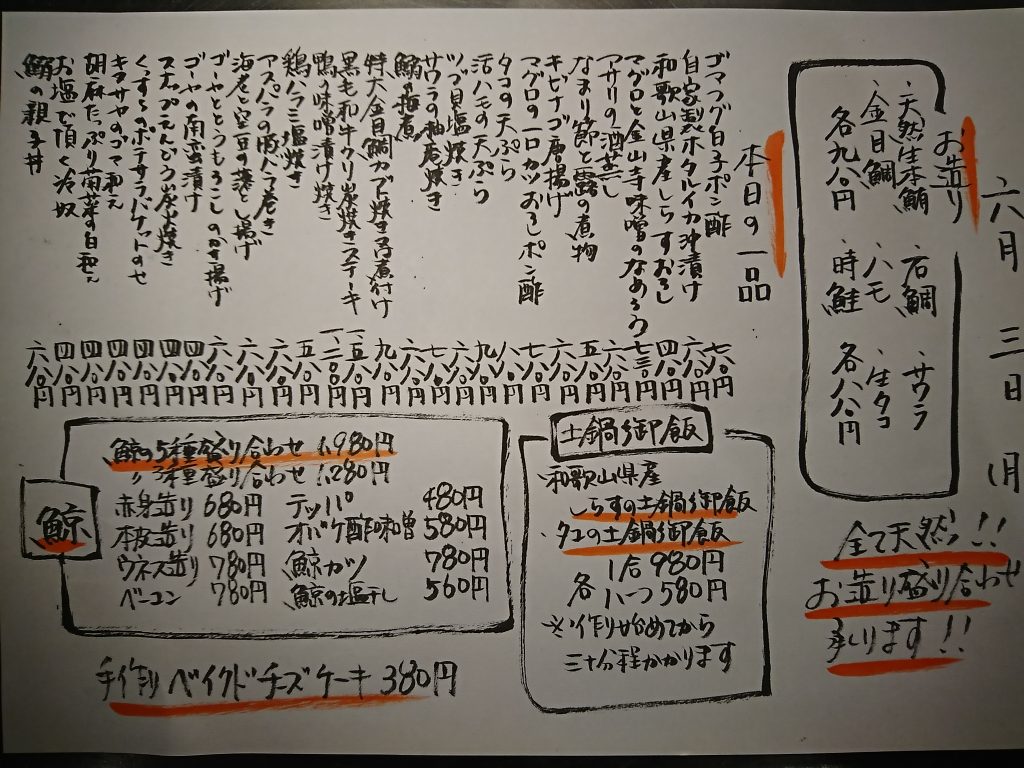 六月三日(月)
お造り
・天然生本鮪 ・石鯛 ・サワラ
・金目鯛 ・ハモ ・生タコ
各九八〇円 時鮭 各八八〇円
全て天然!!
お造り盛り合わせ
承ります!!
本日の一品
ゴマフグ白子ポン酢 七八〇円
自家製ホタルイカ沖漬け 六八〇円
和歌山県産しらすおろし 四八〇円
マグロと金山寺味噌のなめろう 七三〇円
アサリの酒蒸し 六八〇円
なまり節と蕗の煮物 五八〇円
キビナゴ唐揚げ 六八〇円
マグロの一口カツおろしポン酢 七八〇円
タコの天ぷら 八八〇円
活ハモの天ぷら 九八〇円
ツブ貝塩焼き 六八〇円
サワラの柚庵焼き 七八〇円
鰯の梅煮 六八〇円
特大金目鯛カブト焼き煮付け 九八〇円
黒毛和牛クリ炭焼きステーキ 一、五八〇円
鴨の味噌漬け焼き 一、二〇〇円
鶏ハラミ塩焼き 五八〇円
アスパラの豚バラ巻き 六八〇円
海老と空豆の落とし揚げ 六八〇円
ゴーヤととうもろこしのかき揚げ 六八〇円
ゴーヤの南蛮漬け 四八〇円
スナップえんどう炭焼き 四八〇円
ポテサラバケットのせ 四八〇円
キヌサヤのゴマ和え 四八〇円
胡麻たっぷり菊菜の白和え 四八〇円
お塩で頂く冷奴 四八〇円
鰯の親子丼 六八〇円
土鍋御飯
・和歌山県産
しらすの土鍋御飯
・タコの土鍋御飯
1合 980円
各 ハーフ 580円
※作り始めてから
三十分程かかります
鯨
鯨の5種盛り合わせ 1,980円
〃 3種盛り合わせ 1,280円
赤身造り 680円 テッパ 480円
本皮造り 680円 オバケ酢味噌 580円
ウネス造り 780円 鯨カツ 780円
ベーコン 780円 鯨の塩干し 560円
手作りベイクドチーズケーキ 380円